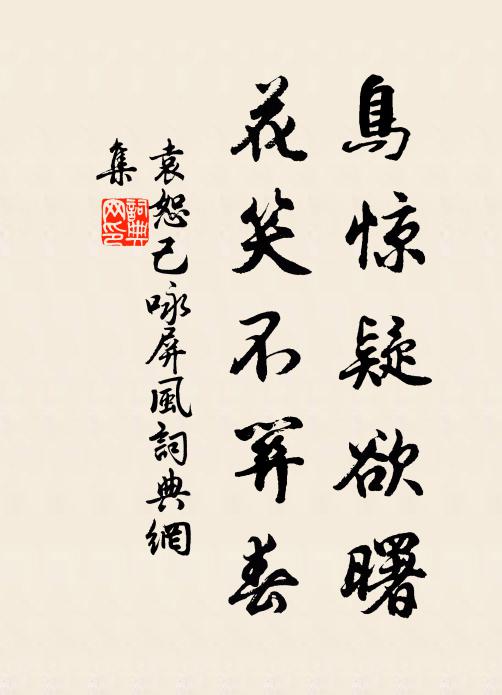 鳥惊疑欲曙
花笑不關春
袁恕己咏屏風詞典網
集
詞典网印